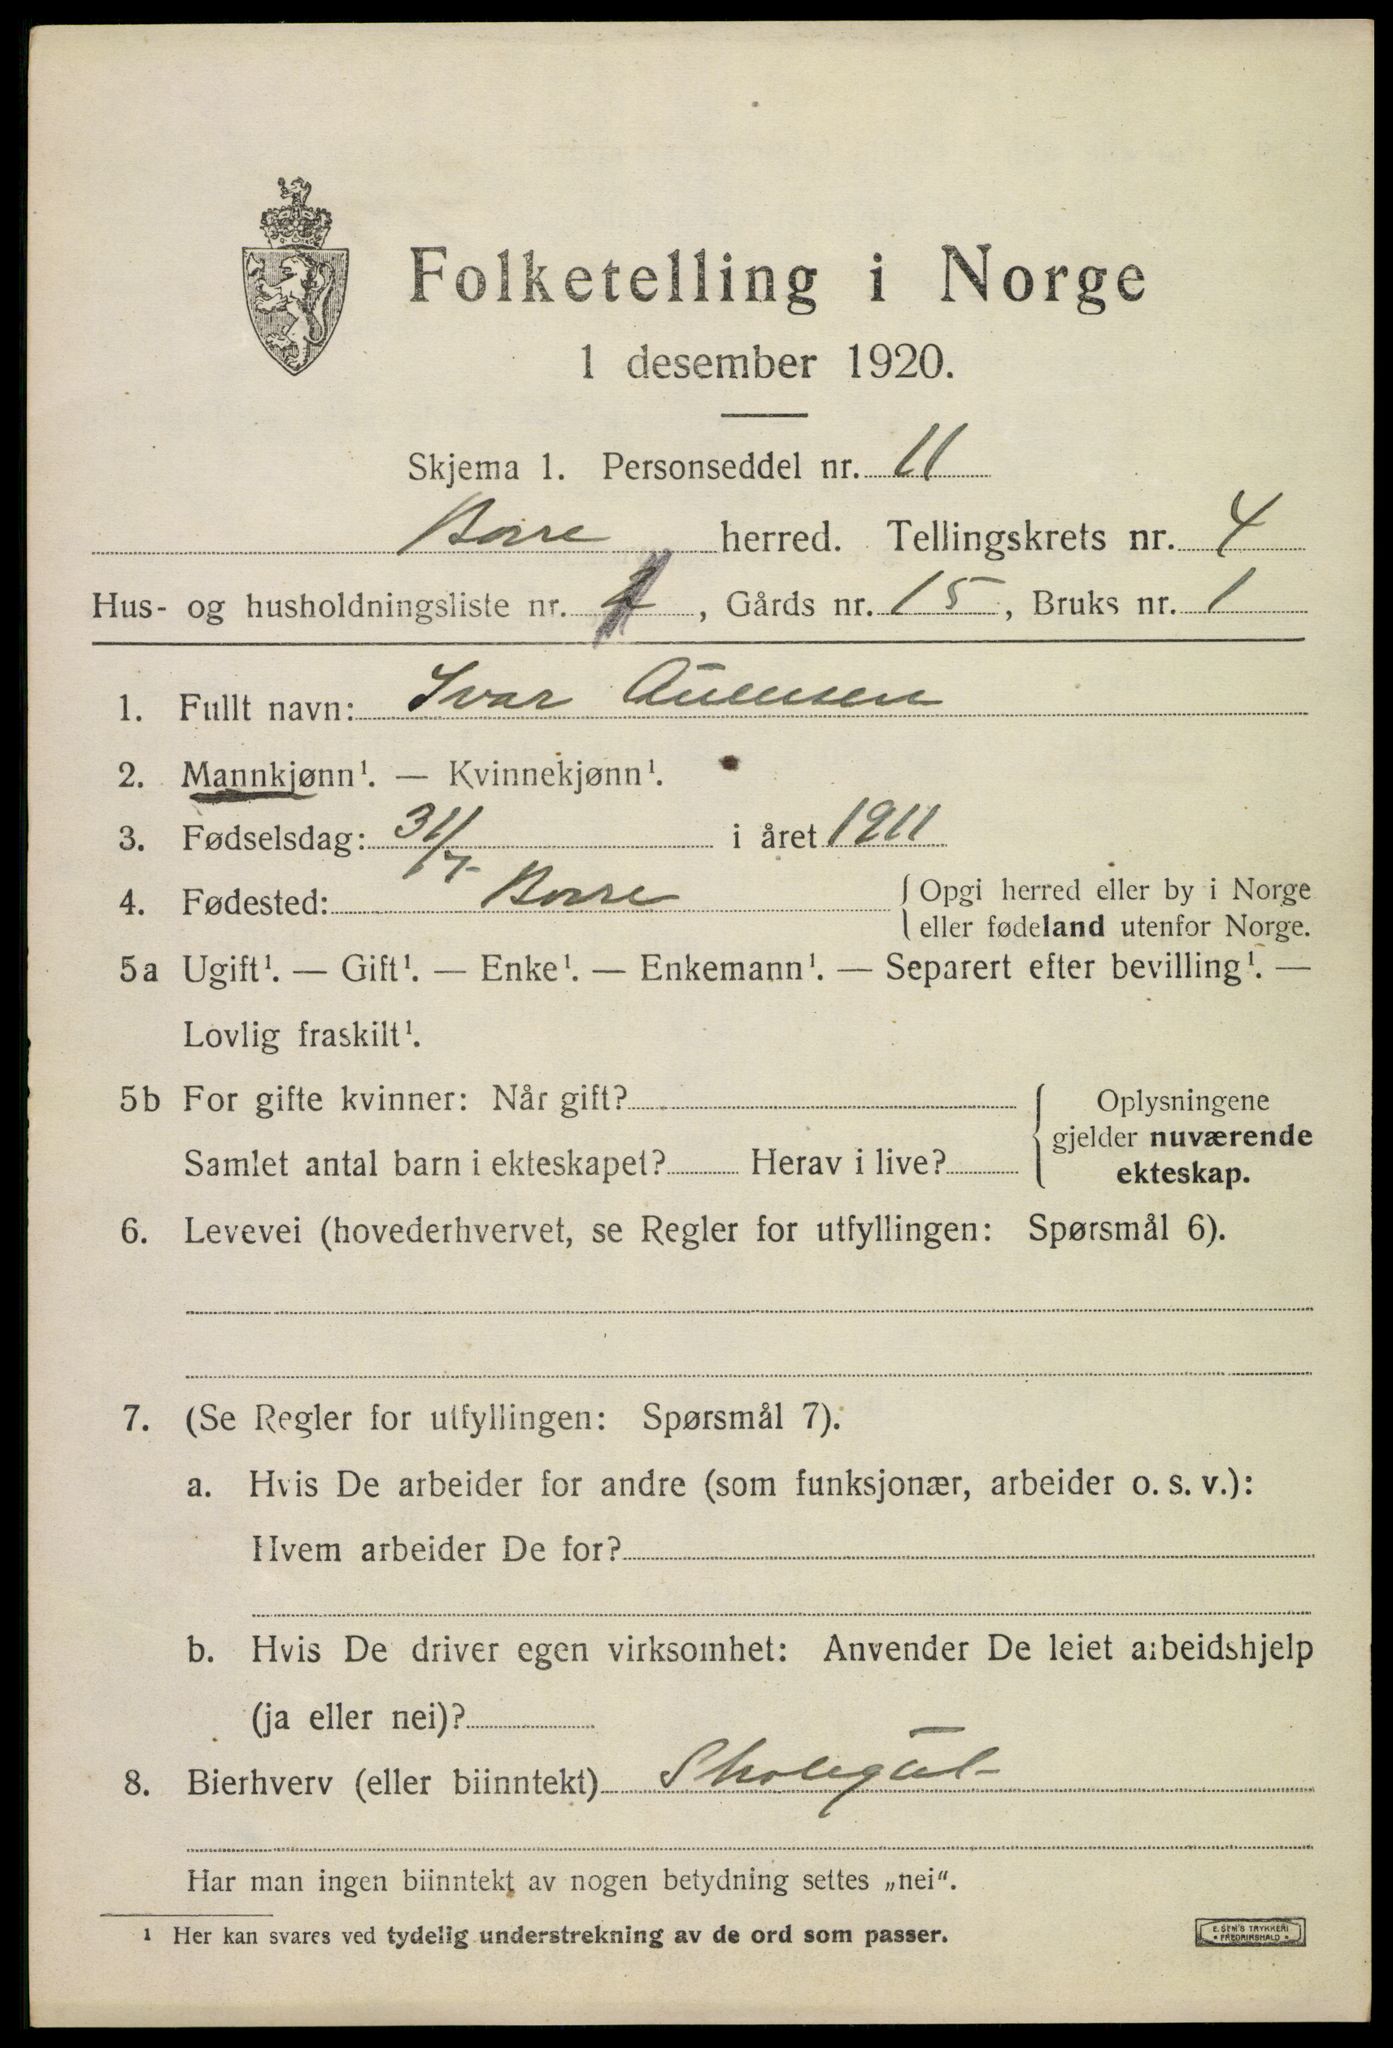 Folketelling i Norge
1 desember 1920.
Skjema 1. Personseddel nr. 11
Borre herred. Tellingskrets nr. 4
Hus- og husholdningsliste nr. 2, Gårds nr. 15, Bruks nr. 1
1. Fullt navn: Ivar
2. Mannkjønn¹. — Kvinnekjønn¹.
3. Fødselsdag: 31/7- i året 1911
4. Fødested: Borre { Opgi herred eller by i Norge
eller fødeland utenfor Norge.
5a Ugift¹. — Gift¹. — Enke¹. — Enkemann¹. — Separert efter bevilling¹. —
Lovlig fraskilt¹.
5b For gifte kvinner: Når gift? { Oplysningene
gjelder nuværende
Samlet antal barn i ekteskapet? Herav i live? ekteskap.
6. Levevei (hovederhvervet, se Regler for utfyllingen: Spørsmål 6).
7. (Se Regler for utfyllingen: Spørsmål 7).
a. Hvis De arbeider for andre (som funksjonær, arbeider o. s. v.):
Hvem arbeider De for?
b. Hvis De driver egen virksomhet: Anvender De leiet arbeidshjelp
(ja eller nei)?
8. Bierhverv (eller biinntekt) Skolegut
Har man ingen biinntekt av nogen betydning settes „nei“.
¹ Her kan svares ved tydelig understrekning av de ord som passer.
E. SEM'S TRYKKERI
• FREDRIKSHALD •